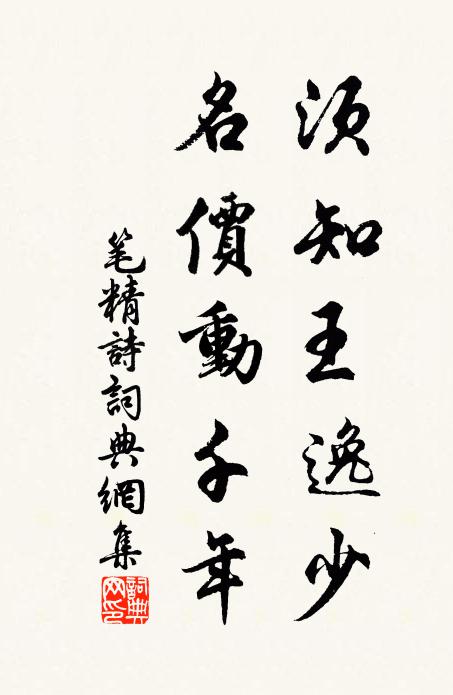 须知王逸少
名價動千年
笔精詩詞典網集
詞典网印